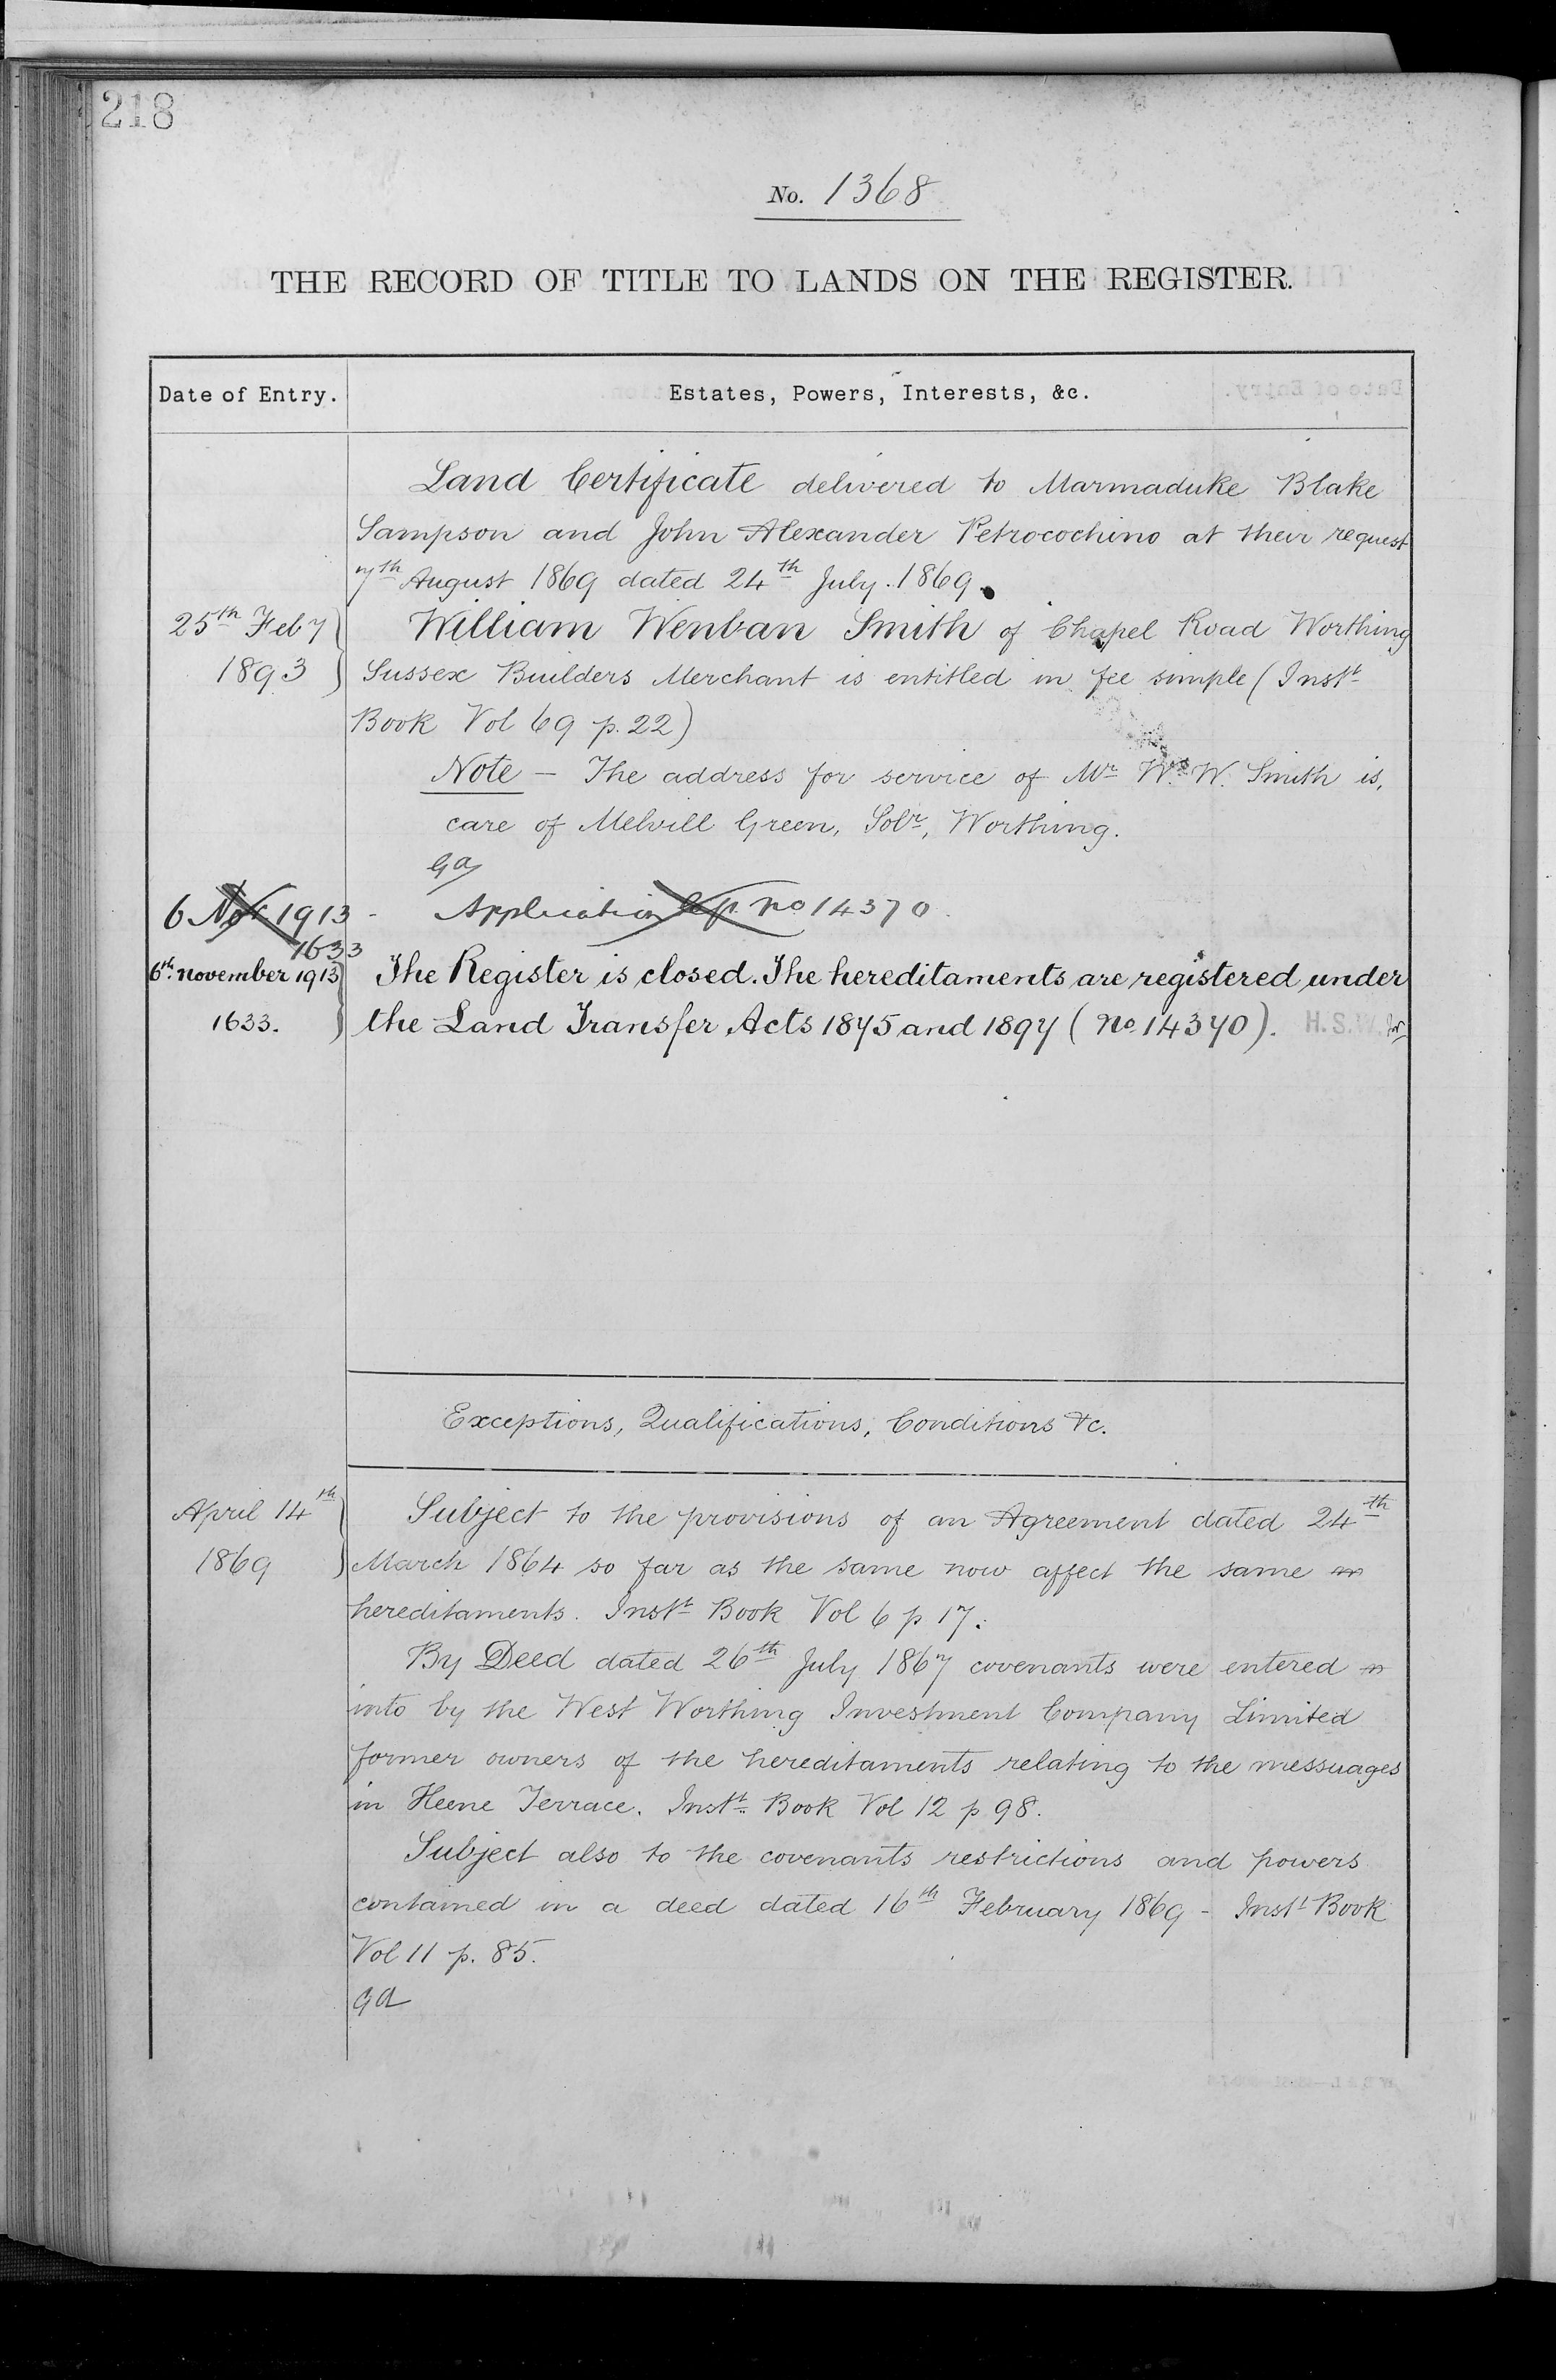 218
No. 1368
THE RECORD OF TITLE TO LANDS ON THE REGISTER.
Date of Entry. Estates, Powers, Interests, &c.
Land Certificate delivered to Marmaduke Blake
Sampson and John Alexander Petrocochino at their request
7th August 1869 dated 24th July. 1869.
25th Feby William Wenban Smith of Chapel Road Worthing
1893 Sussex Builders Merchant is entitled in fee simple (Instt
Book Vol 69 p. 22)
Note – The address for service of Mr Wm W. Smith is,
care of Melvill Green, Solr, Worthing.
Ga
6 Nov 1913 - Application no 14370.
1633
6th November 1913 The Register is closed. The hereditaments are registered under
1633. the Land Transfer Acts 1875 and 1897 (No. 14370). H.S.W.
Exceptions, Qualifications, Conditions &c.
April 14th Subject to the provisions of an Agreement dated 24th
1869 March 1864 so far as the same now affect the same
hereditaments. Instt Book Vol 6 p 17.
By Deed dated 26th July 1867 covenants were entered
into by the West Worthing Investment Company Limited
former owners of the hereditaments relating to the messuages
in Heene Terrace. Instt Book Vol 12 p 98.
Subject also to the covenants restrictions and powers
contained in a deed dated 16th February 1869 - Instt Book
Vol 11 p. 85.
Ga